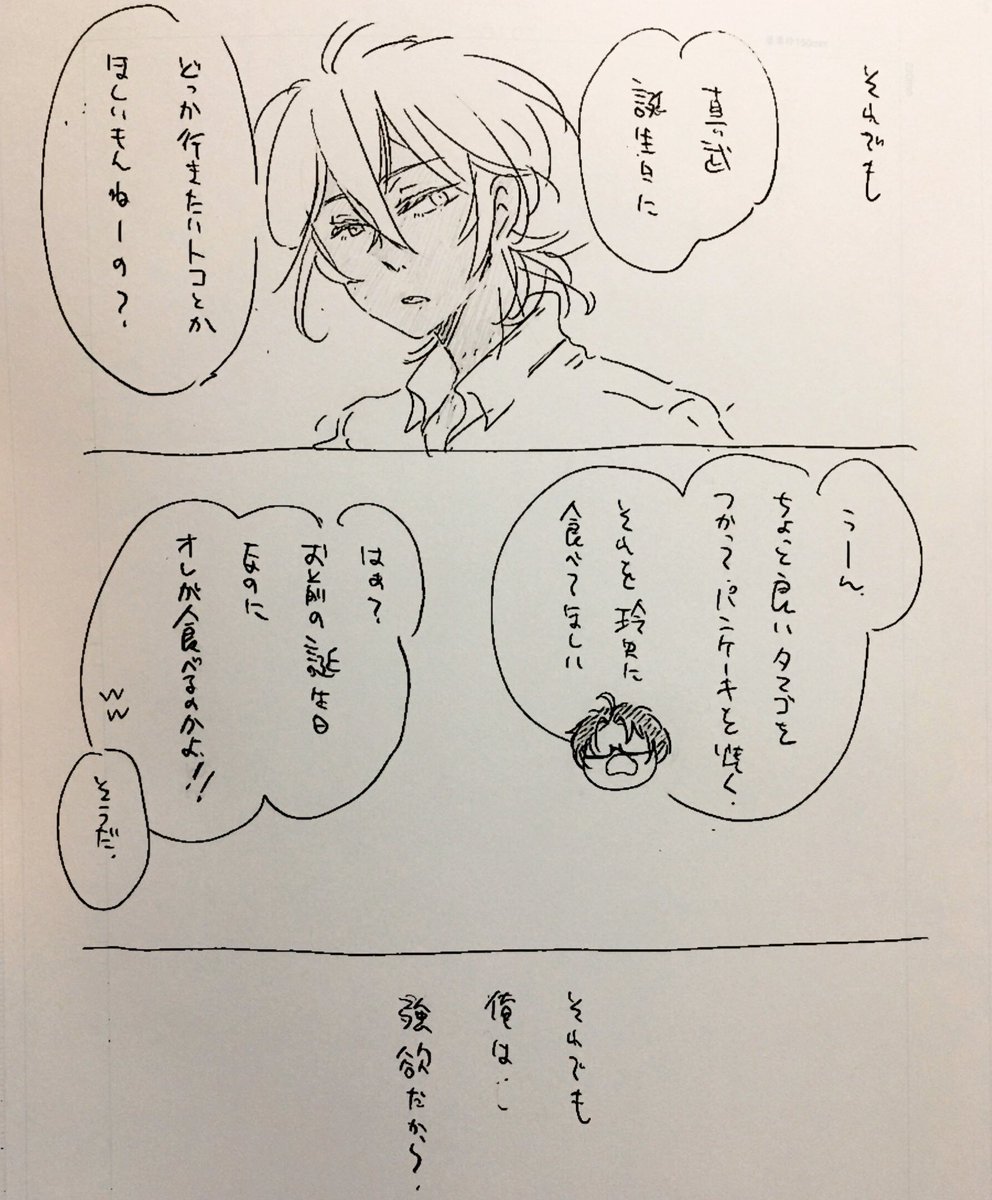 それでも
真武
誕生日に
どっか行きたいトコとか
ほしいもんねーの?
うーん。
ちょっと良いタマゴを
つかってパンケーキを焼く。
それを玲央に
食べてほしい
はぁ?
お前の誕生日
なのに
オレが食べるのかよ!!
ww
そうだ。
それでも
俺は…
強欲だから。